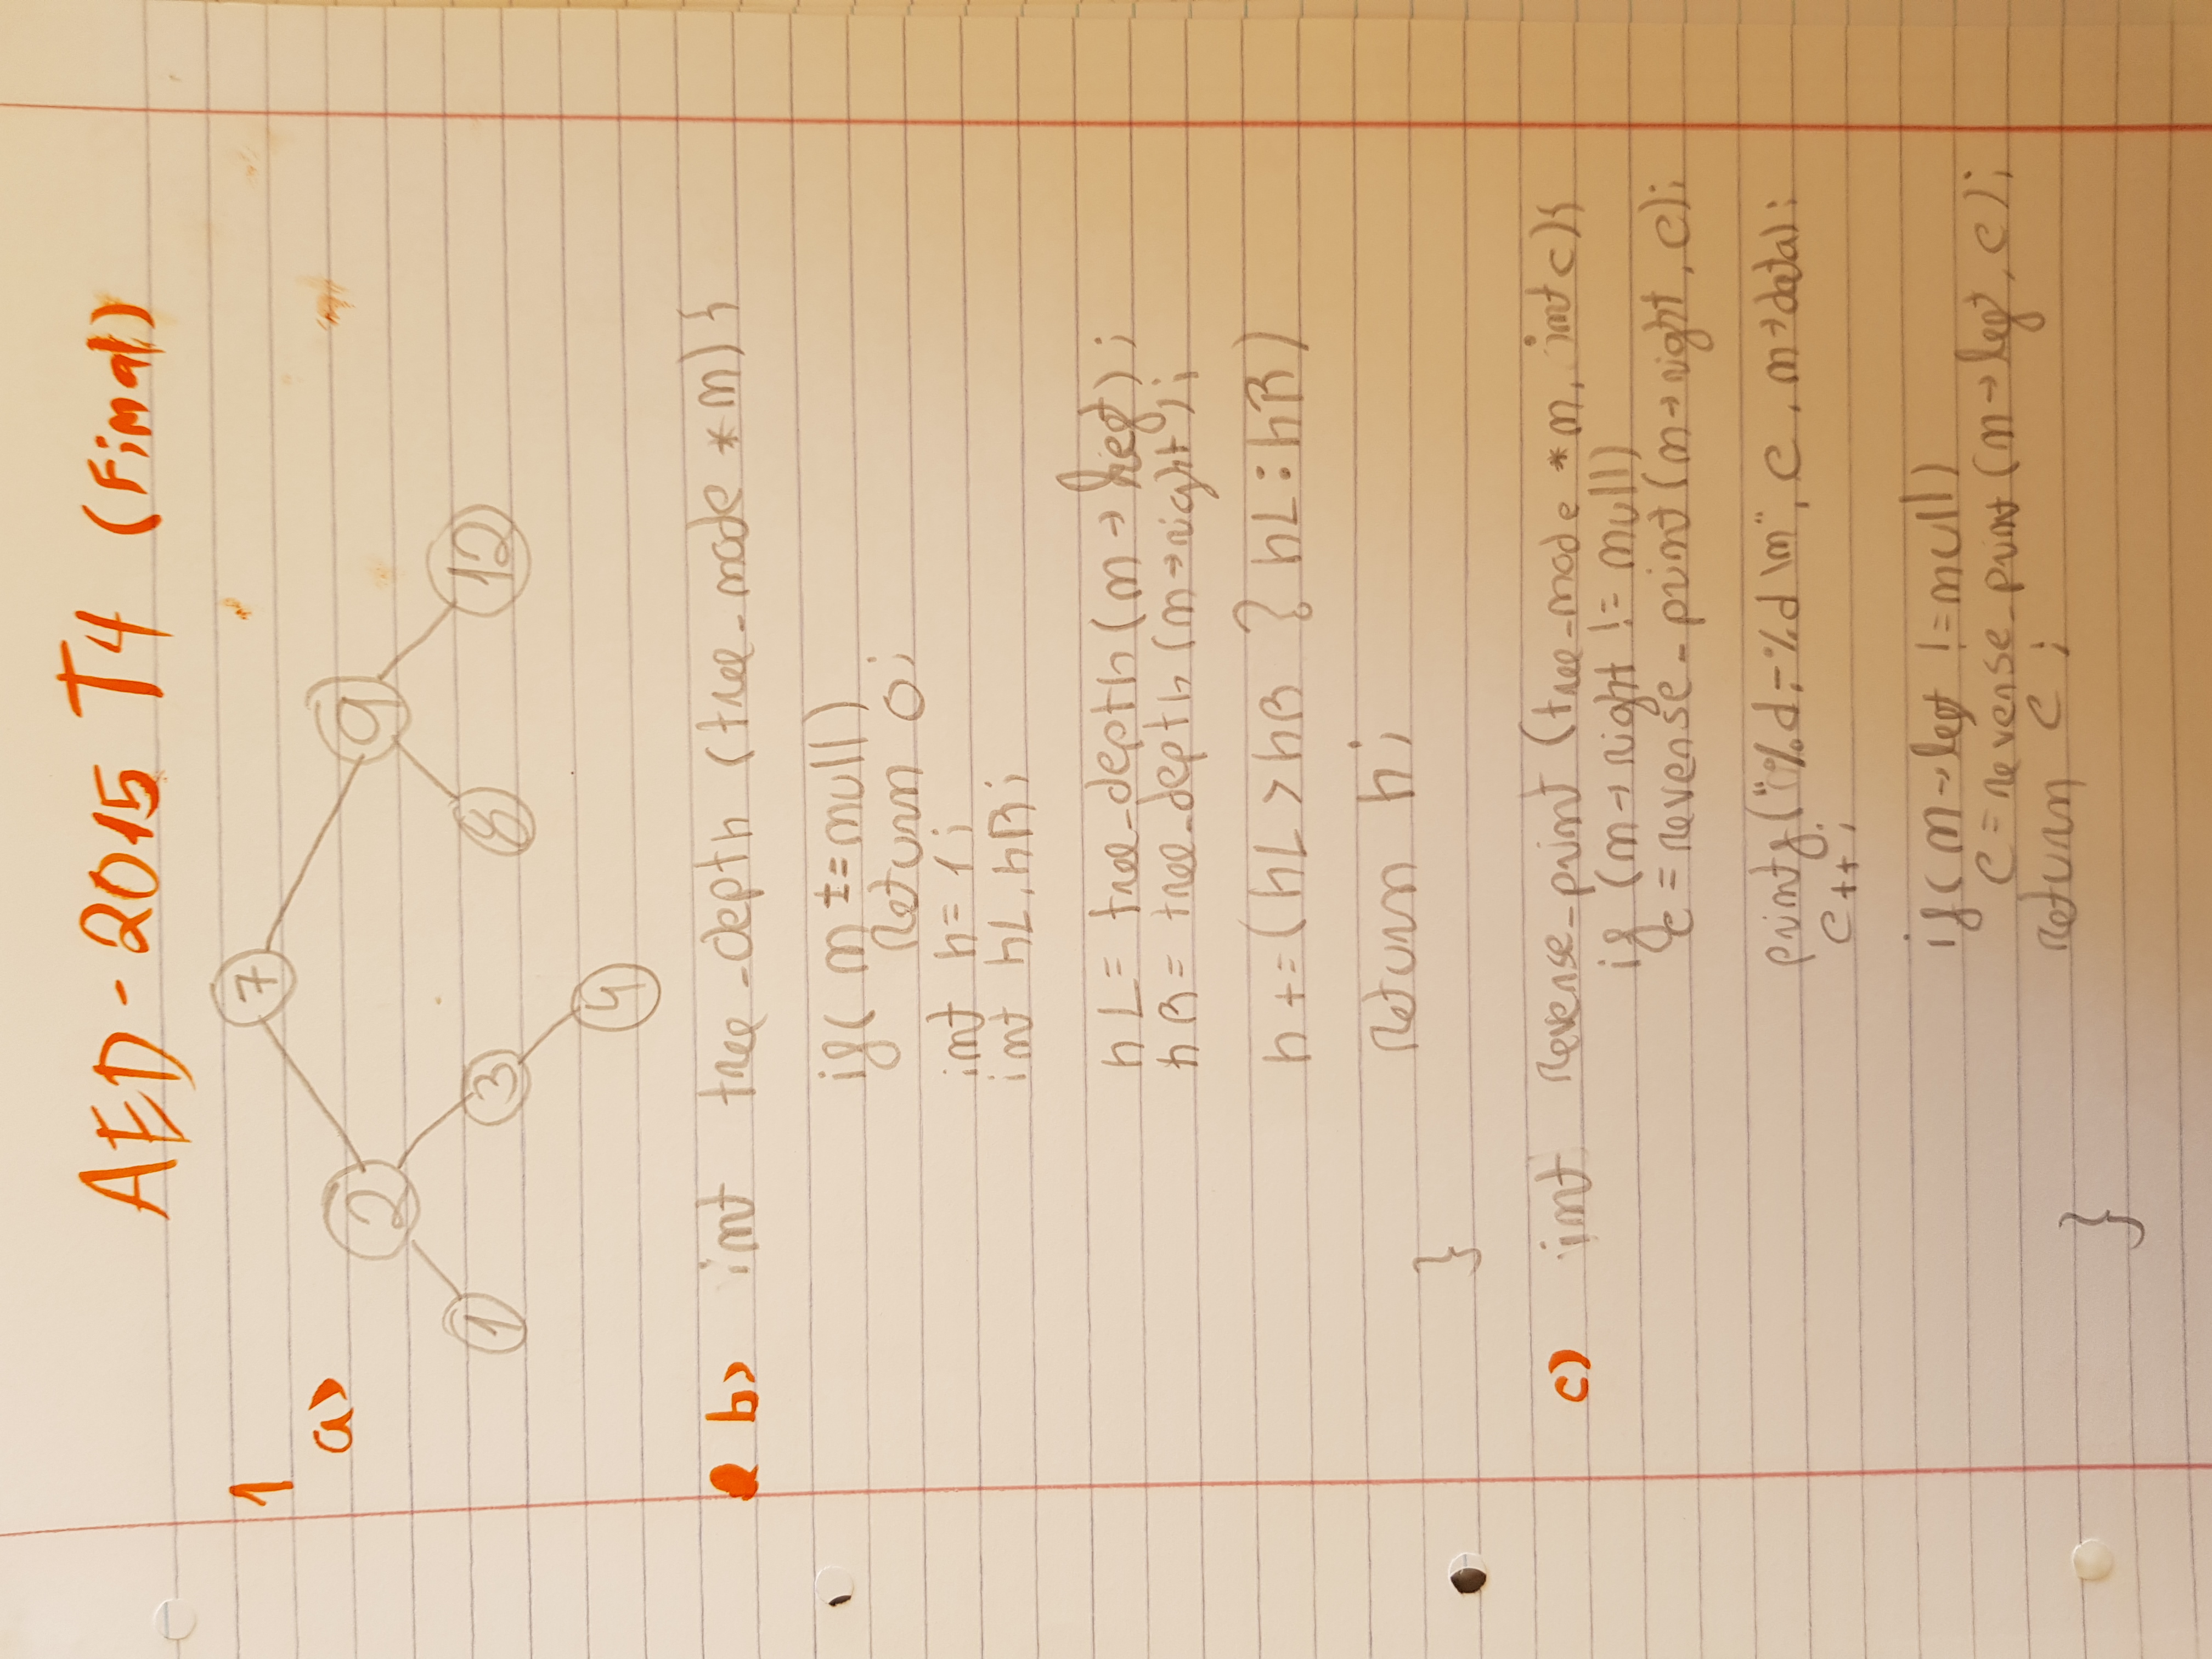 AED - 2015 T4 (Final)
1
a)
7
2 9
1 3 8 12
4
b) int tree_depth (tree_node *n) {
if( n == null)
Return 0;
int h = 1;
int hL, hR;
hL = tree_depth (n → left);
hR = tree_depth (n → right);
h += (hL > hR ? hL : hR)
Return h;
}
c) int Reverse_print (tree_node *n, int c){
if (n → right != null)
c = reverse_print (n → right, c);
printf("%d - %d \n", c, n → data);
c++;
if( n → left != null)
c = reverse_print (n → left, c);
return c;
}